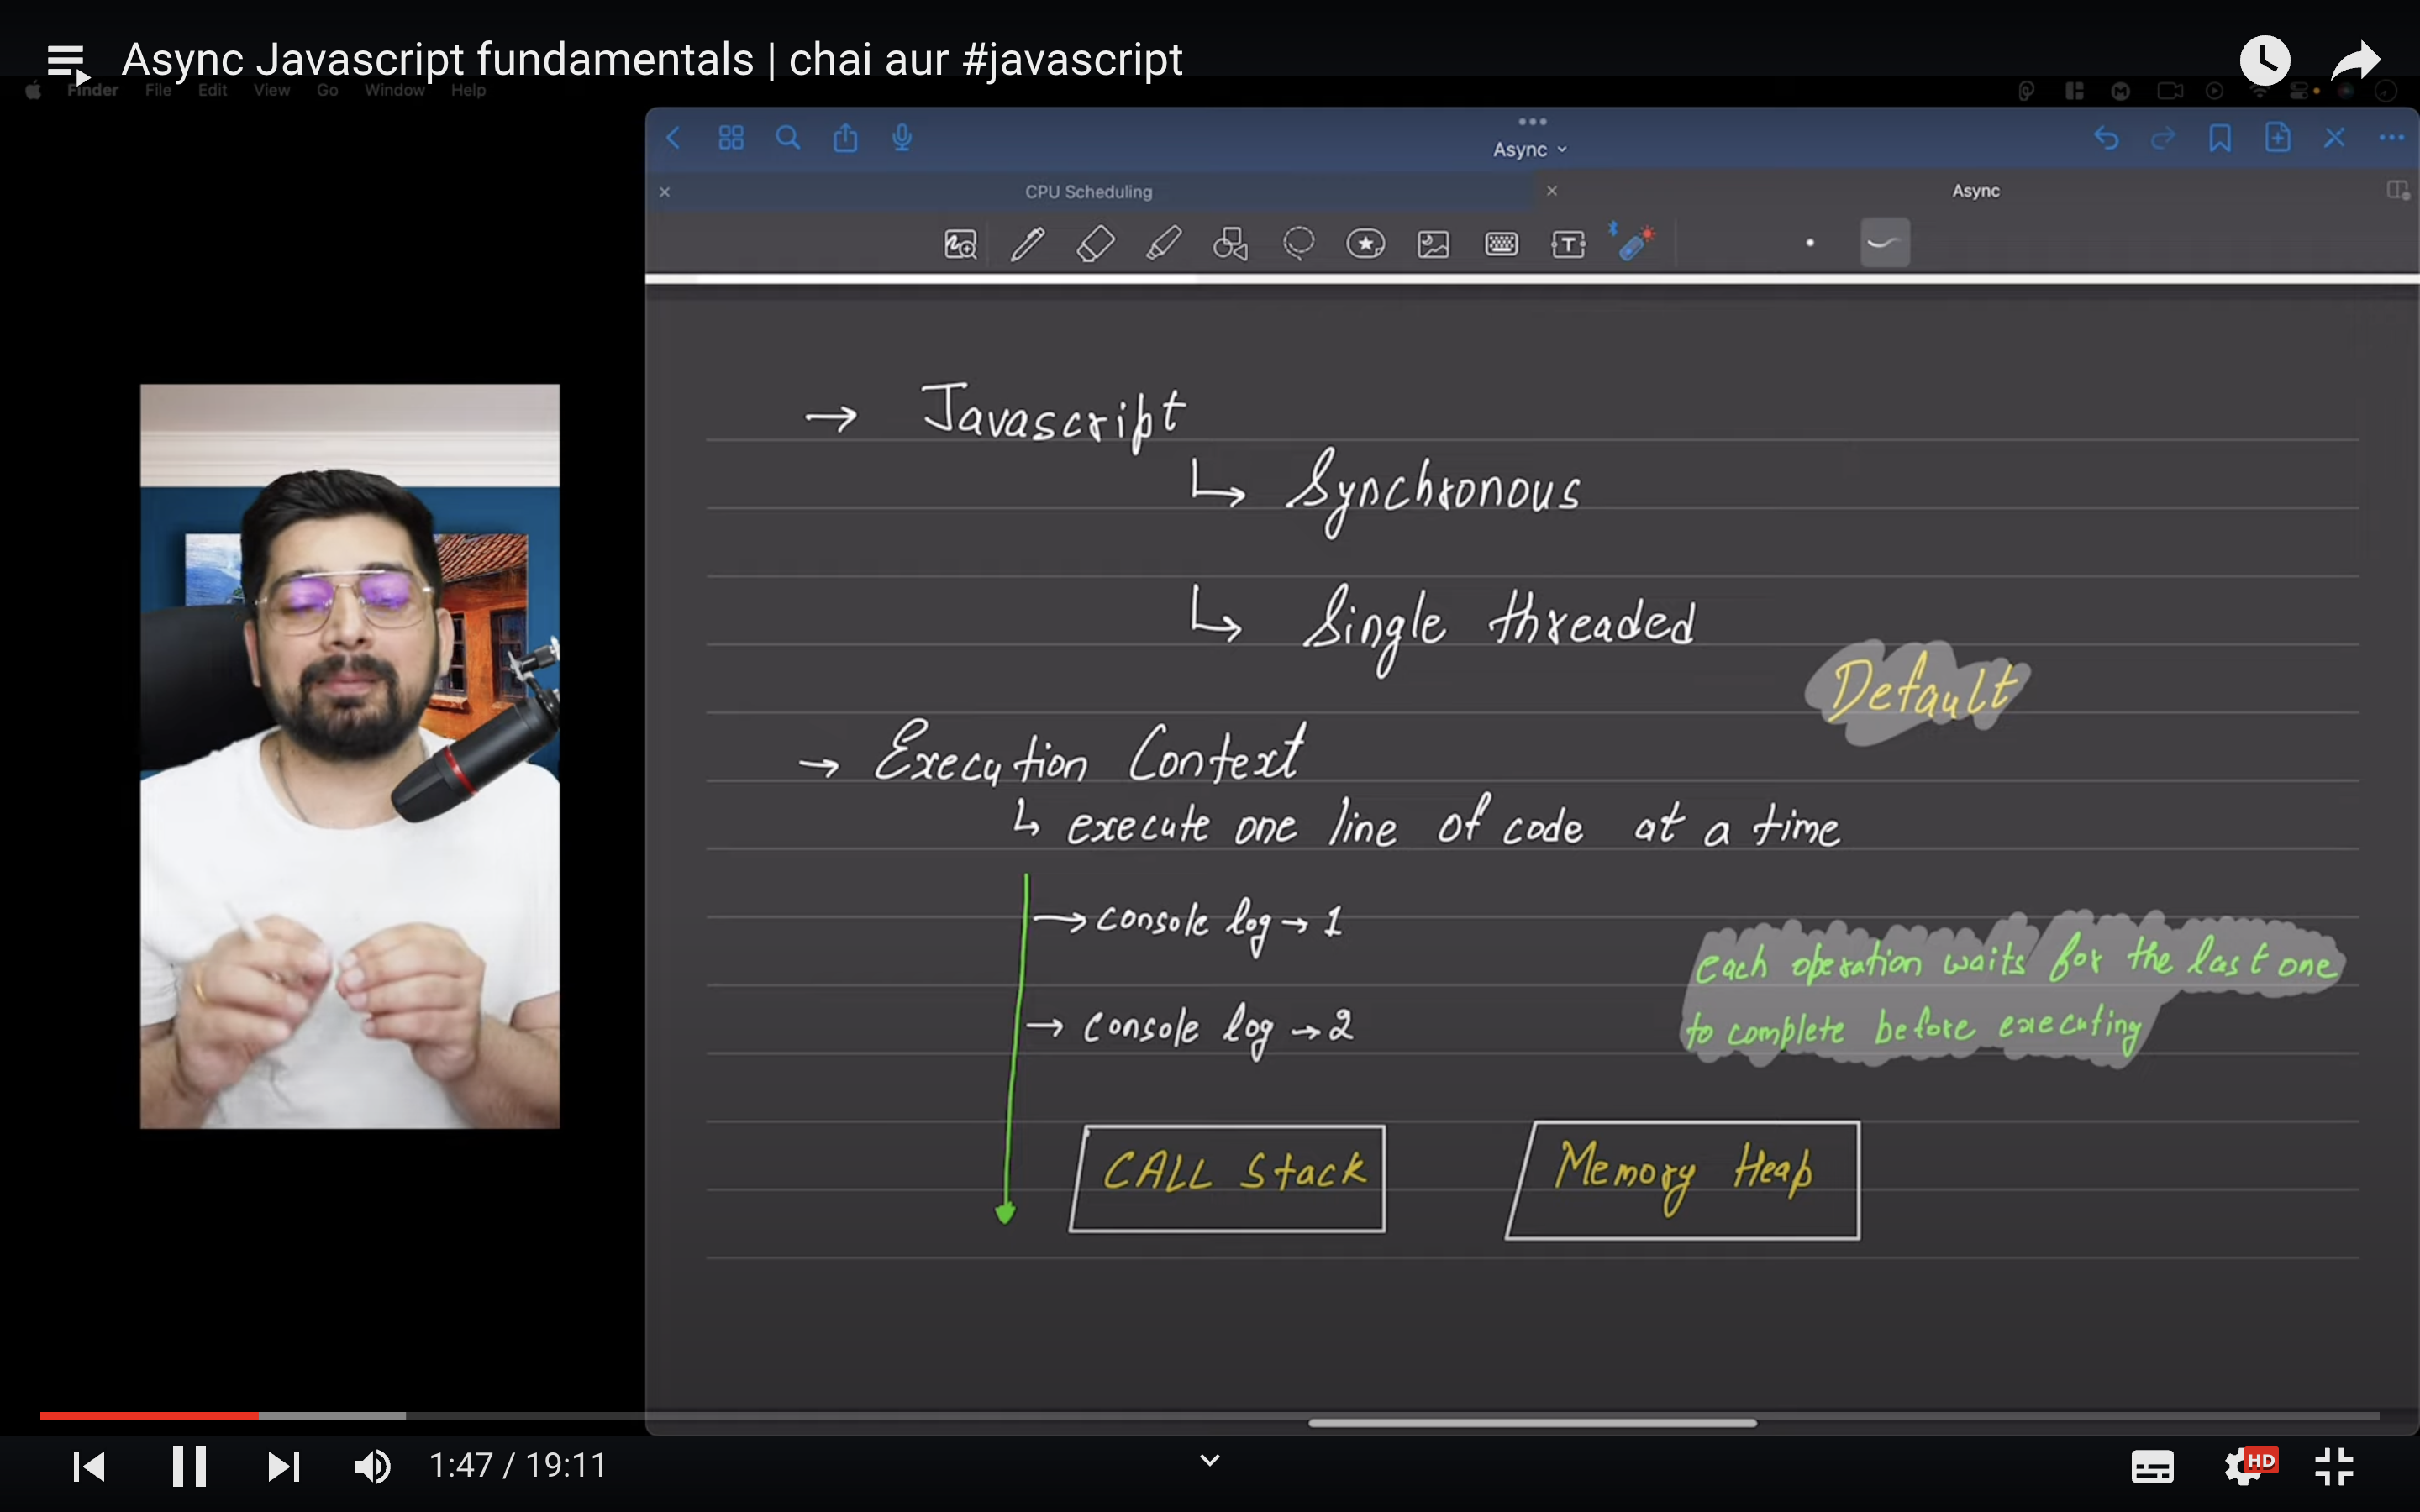 Async Javascript fundamentals | chai aur #javascript
Finder File Edit View Go Window Help
Async
CPU Scheduling
Async
→ Javascript
↳ Synchronous
↳ Single threaded
Default
→ Execution Context
↳ execute one line of code at a time
→ console log → 1
each operation waits for the last one
to complete before executing
→ console log → 2
CALL Stack
Memory Heap
1:47 / 19:11
HD